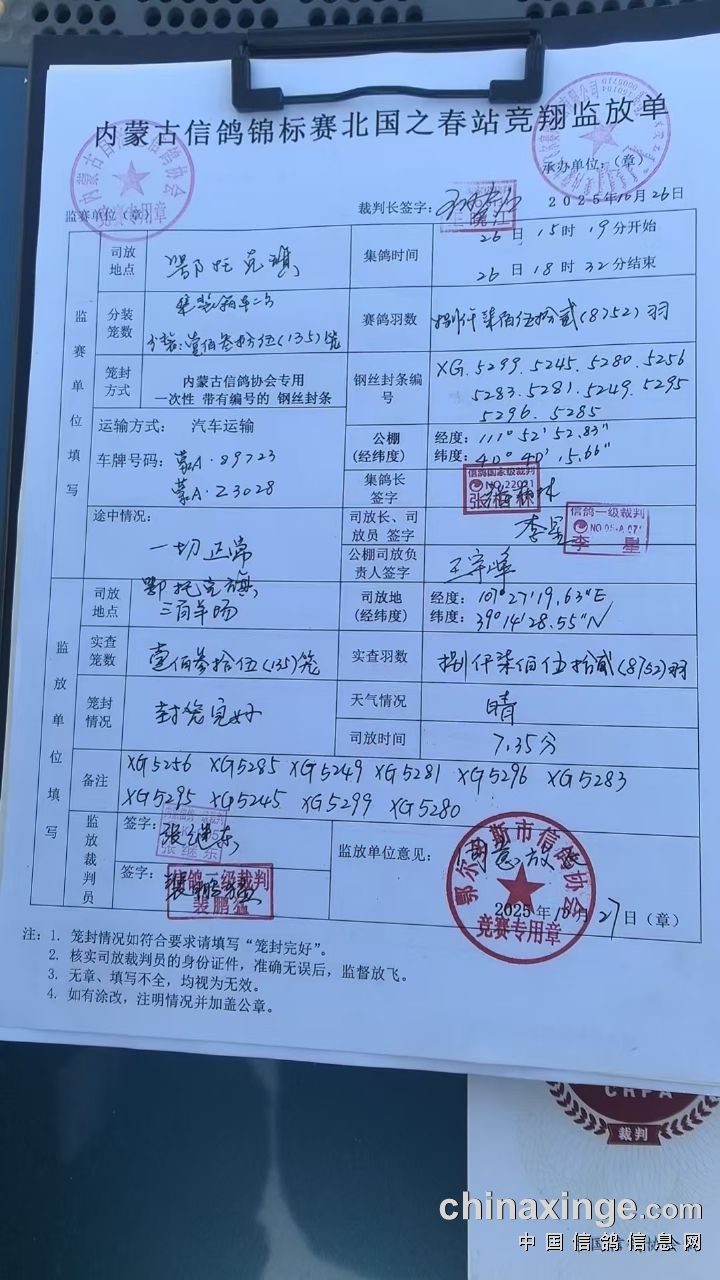 内蒙古信鸽锦标赛北国之春站竞翔监放单
承办单位：（章）
监赛单位（章） 裁判长签字： 2025年10月26日
内蒙古信鸽协会
竞赛专用章
监赛单位填写
司放地点 鄂托克旗 集鸽时间 26日15时19分开始
26日18时32分结束
分装笼数 集装箱车二台 赛鸽羽数 捌仟柒佰伍拾贰(8752)羽
分装:壹佰叁拾伍(135)笼
笼封方式 内蒙古信鸽协会专用
一次性 带有编号的 钢丝封条
钢丝封条编号 XG.5299.5245.5280.5256
5283.5281.5249.5295
5296.5285
运输方式： 汽车运输
车牌号码：蒙A·89723
蒙A·Z3028
公棚（经纬度） 经度：111°52′52.83″
纬度：40°40′15.66″
集鸽长签字
信鸽国家级裁判
NO.22021
途中情况：
一切正常
司放长、司放员 签字 李星
信鸽一级裁判
NO.05-A-071
李星
公棚司放负责人签字 王宇峰
监放单位填写
司放地点 鄂托克旗
三百羊场
司放地（经纬度） 经度：107°27′19.63″E
纬度：39°14′28.55″N
实查笼数 壹佰叁拾伍(135)笼 实查羽数 捌仟柒佰伍拾贰(8752)羽
笼封情况 封笼完好 天气情况 晴
司放时间 7.35分
备注 XG5256 XG5285 XG5249 XG5281 XG5296 XG5283
XG5295 XG5245 XG5299 XG5280
监放裁判员
签字：张继东
张继东
签字：裴鹏猛
信鸽一级裁判
裴鹏猛
监放单位意见： 同意放飞
鄂尔多斯市信鸽协会
竞赛专用章
2025年10月27日（章）
注：1. 笼封情况如符合要求请填写“笼封完好”。
2. 核实司放裁判员的身份证件，准确无误后，监督放飞。
3. 无章、填写不全，均视为无效。
4. 如有涂改，注明情况并加盖公章。
CRPA
裁判
chinaxinge.com
中国信鸽信息网